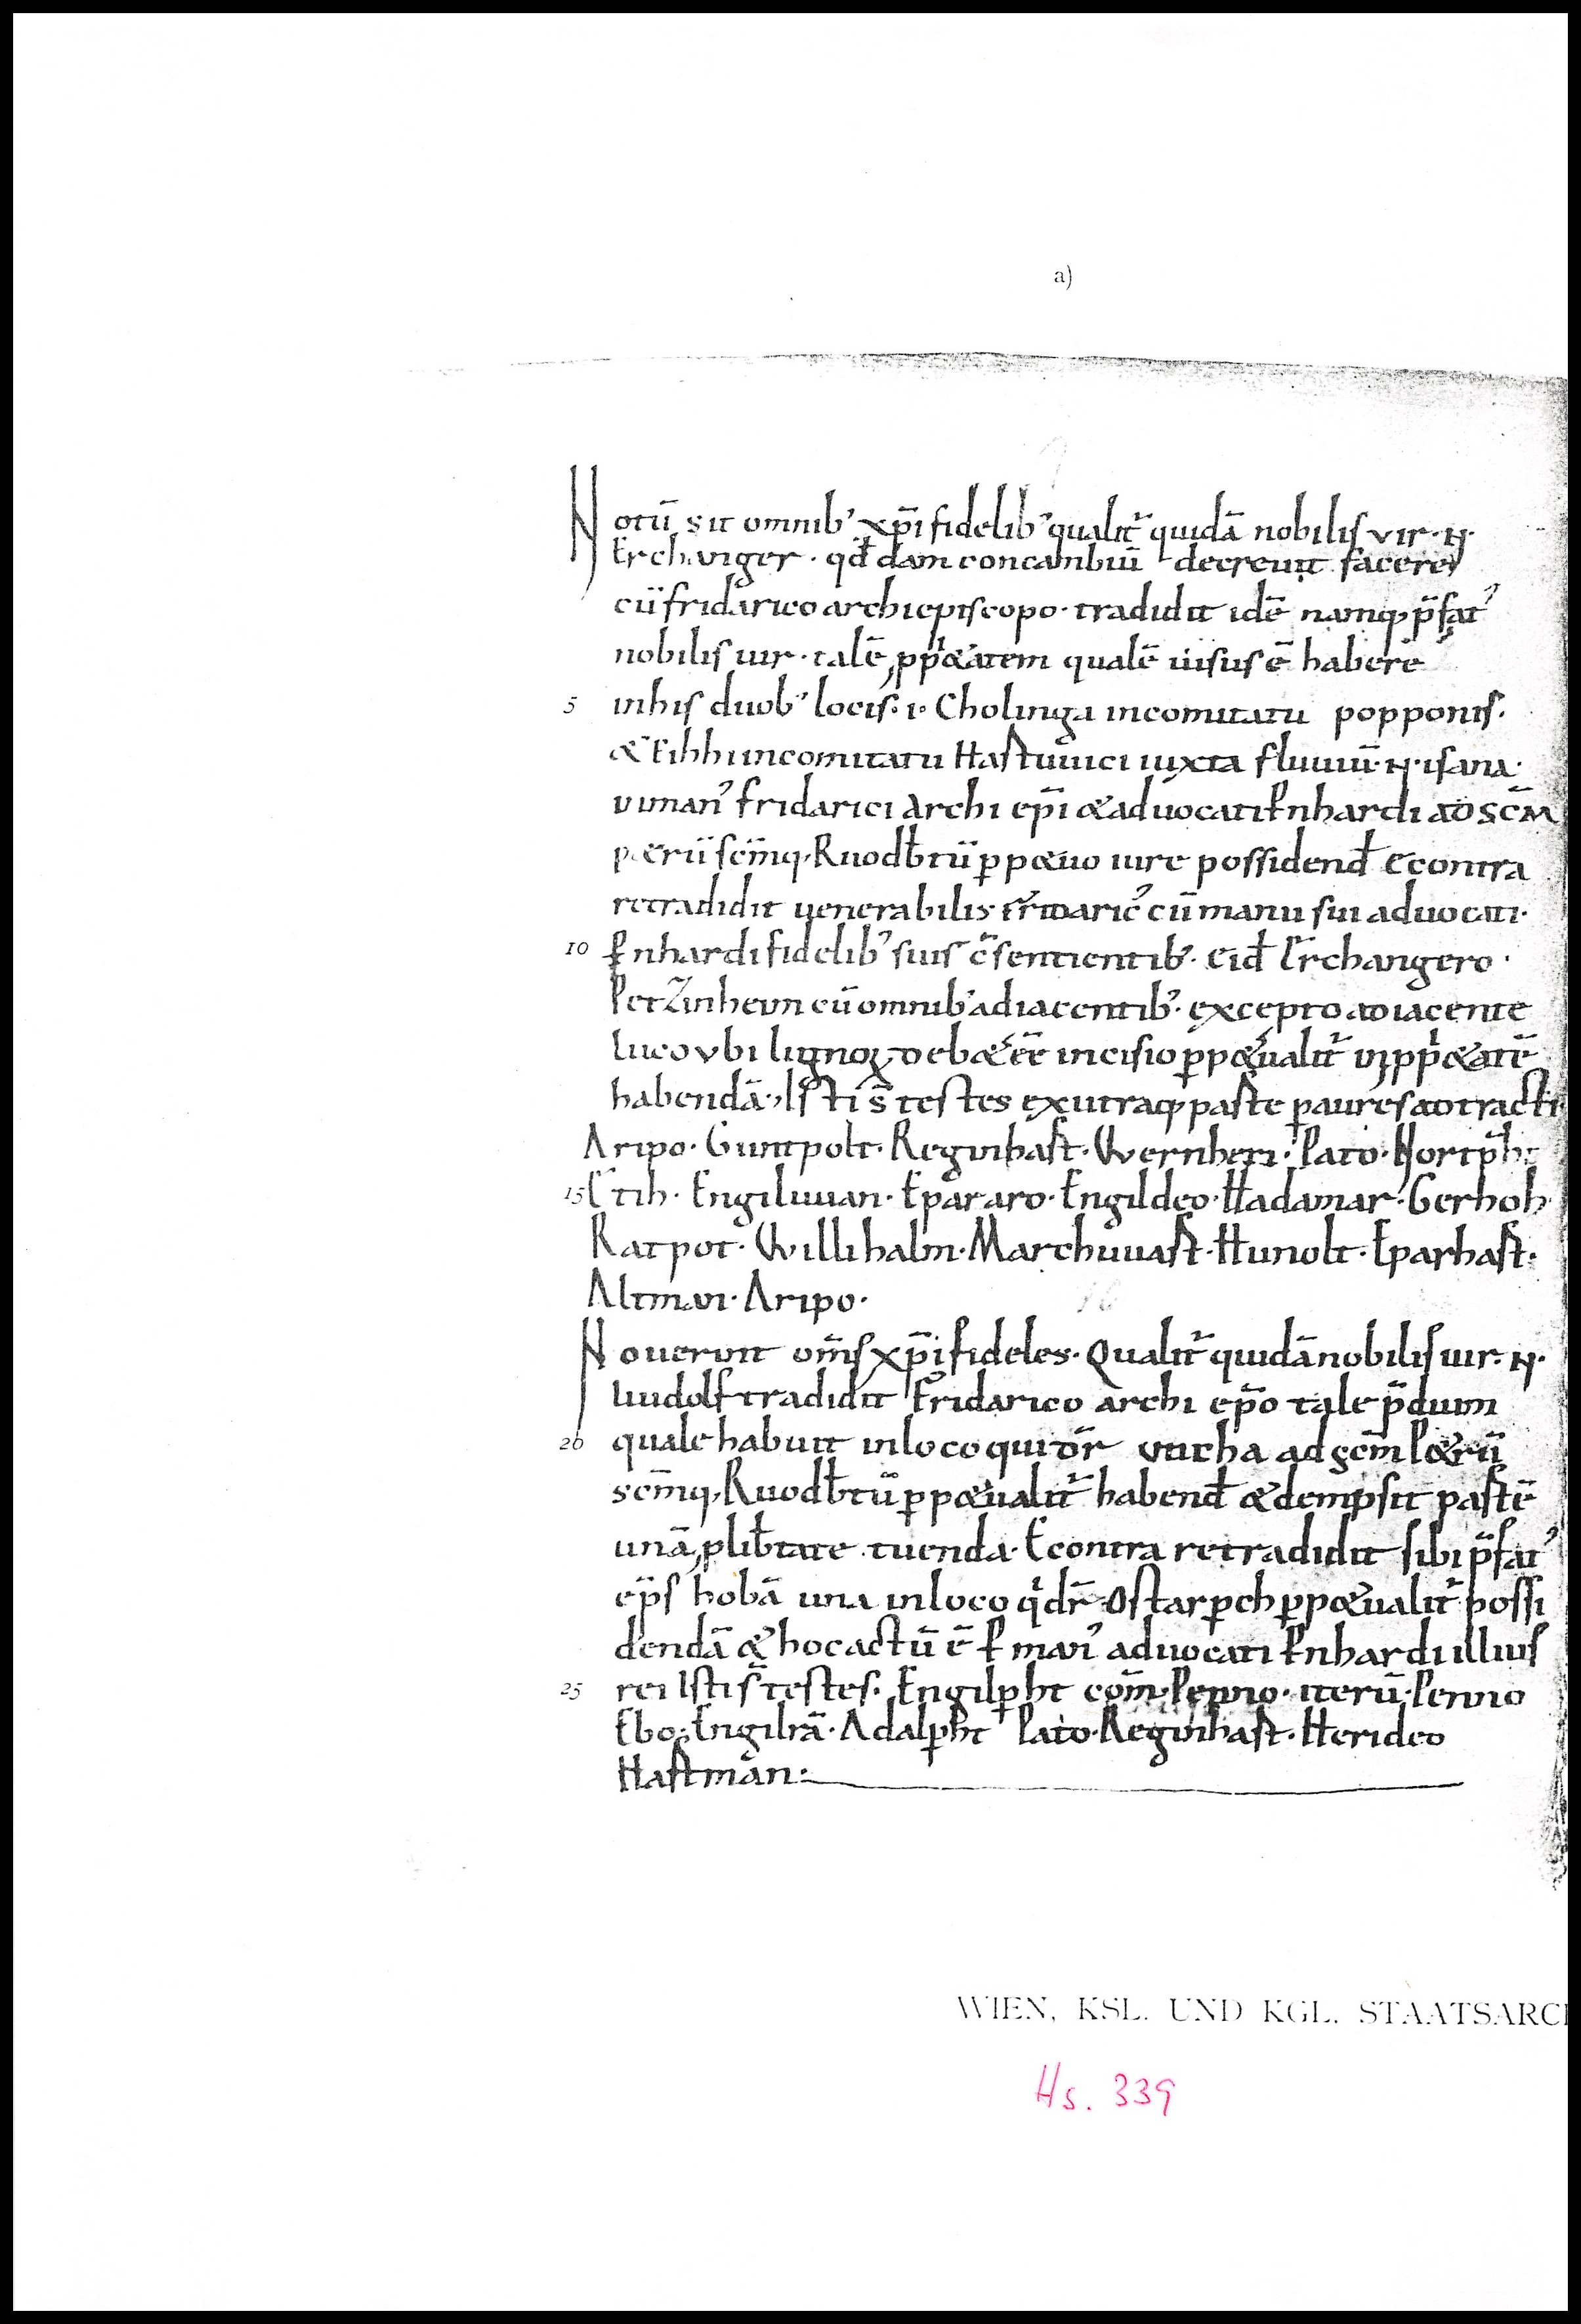 a)
Notū sit omnib' xp̄i fidelib' qualit̄ quidā nobilis vir· n̄·
Erchanger· qđdam concambiū decreuit facere
cū fridarico archiepiscopo· tradidit idē namq; p̄fat'
nobilis uir· talē ꝓprietatem qualē uisus ē habere
5 inhis duob' locis· i· Cholinga incomitatu popponis·
& Eihhi incomitatu Hartuuici iuxta fluuiū· n̄· isana·
in man' fridarici Archi ep̄i & aduocati Ꝑnhardi AD SC̄M
p&rū sc̄mq; Ruodƀtū ꝑp&uo iure possidenđ Econtra
retradidit uenerabilis fridaric' cū manu sui aduocati·
10 Ꝑnhardi fidelib' suis c̄sentientib'· Eiđ Erchangero·
PetZinheim cū omnib' adiacentib'· excepto adiacente
luco vbi lignoꝝ deb& ēē incisio ꝑp&ualit̄ in ꝓpri&atē
habendā· Isti s̄ testes ex utraq; parte ꝑ aures adtracti·
Aripo· Guntpolt· Reginhart· Wernheri· Pato· Nortp̄ht
15 Etih· Engiluuan· Epararo· Engildeo· Hadamar· Gerhoh·
Ratpot· Willihalm· Marchuuart· Hunolt· Eparhart·
Altman· Aripo·
Nouerint om̄s xp̄i fideles· Qualit̄ quidā nobilis uir· n̄·
liudolf tradidit Fridarico archi ep̄o tale p̄dium
20 quale habuit inloco qui dr̄ uticha ad sc̄m P&rū
sc̄mq; Ruodƀtū ꝑp&ualit̄ habenđ & dempsit partē
unā, ꝓ liƀtate tuenda· Econtra retradidit sibi p̄fat'
ep̄s hobā unā inloco q̇ dr̄ Ostarꝑch ꝑp&ualit̄ possi
dendā & hoc actū ē ꝑ man' aduocati Ꝑnhardi illius
25 rei Isti s̄ testes· Engilꝑht com̄· Penno· iterū· Penno
Ebo· Engilrā· Adalꝑht Pato· Reginhart· Herideo
Hartman:
WIEN, KSL. UND KGL. STAATSARC
Hs. 339